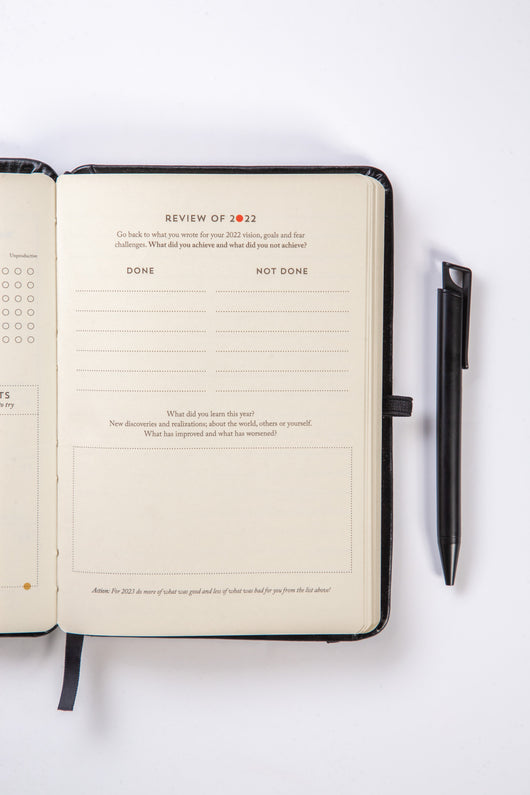 Unproductive
TS
to try
REVIEW OF 2022
Go back to what you wrote for your 2022 vision, goals and fear
challenges. What did you achieve and what did you not achieve?
DONE
NOT DONE
What did you learn this year?
New discoveries and realizations; about the world, others or yourself.
What has improved and what has worsened?
Action: For 2023 do more of what was good and less of what was bad for you from the list above!